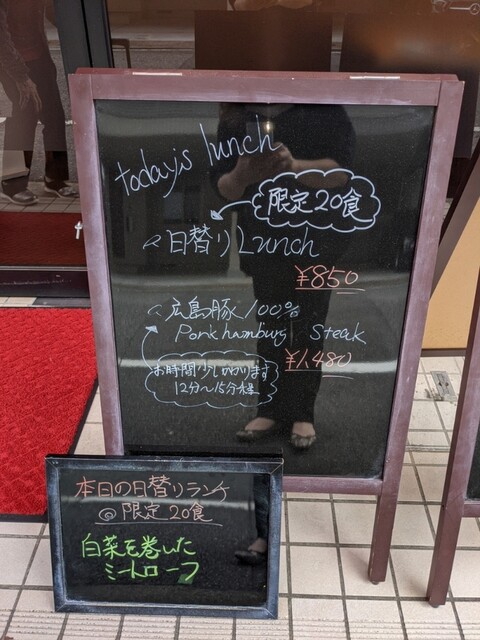 today's lunch
限定20食
日替りLunch
¥850
広島豚100%
Pork hamburg Steak
¥1,480
お時間少しかかります
12分〜15分程
本日の日替りランチ
@限定20食
白菜を巻いた
ミートローフ